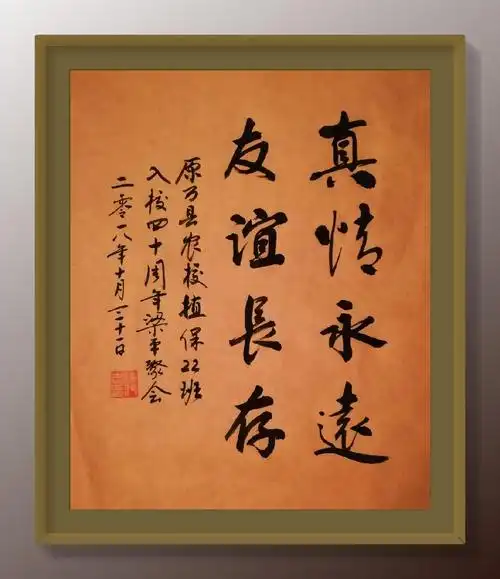 真情永遠
友誼長存
原万县农校植保22班
入校四十周年梁平聚会
二零一八年十月二十一日